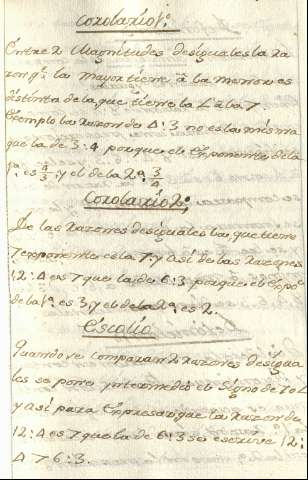 Corolario 1º.
Entre 2 Magnitudes desiguales la ra
zon qᵉ. la mayor tiene â la menor es
distinta de la que tiene la L â la 7.
Exemplo la razon de 4 : 3 no es la misma
que la de 3 : 4 porque el Exponente de la
1ª. es 4/3 y el de la 2ª. 3/4.
Corolario 2º.
De las razones desiguales la que tiene
7 exponente es la 7. y asi de las razones
12 : 4 es 7 que la de 6 : 3 porque el Expoᵗᵉ.
de la 1ª. es 3 y el de la 2ª. es 2.
Escolio
Quando se comparan 2 razones desigua
les se pone intermedio el signo de 7 o L
y asi para Expresar que la razon de
12 : 4 es 7 que la de 6 : 3 se escrive 12 :
4 7 6 : 3.